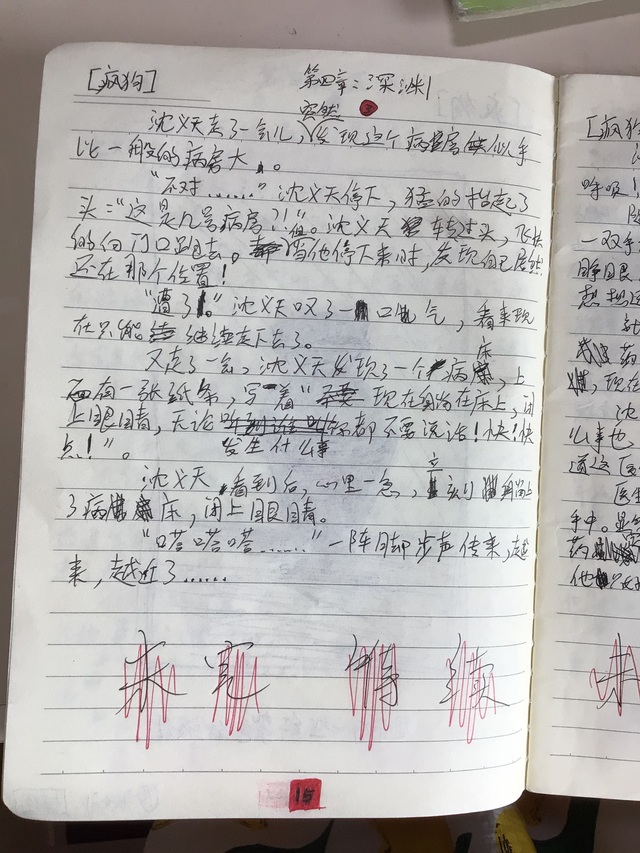 [疯狗]
第四章:深渊
沈义天走了一会儿,突然发现这个病房似乎
比一般的病房大。
“不对……”沈义天停下,猛的抬起了
头:“这是几号病房?!”。沈义天转过头,飞快
的向门口跑去。但当他停下来时,发现自己居然
还在那个位置!
“遭了!”沈义天叹了一口气,看来现
在只能继续走下去了。
又走了一会,沈义天发现了一个病床,上
面有一张纸条,写着“现在躺在床上,闭
上眼睛,无论发生什么事你都不要说话!快!快
点!”。
沈义天看到后,心里一急,立刻躺上
了病床,闭上眼睛。
“嗒嗒嗒……”一阵脚步声传来,越
来,越近了……
未完待续
15
[疯狗
呼吸!
一双手
睁眼
想
现在
沈
么事也
道这医
医生
手中。显
药
他
未